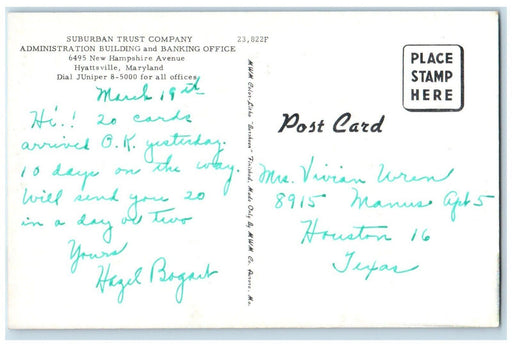 SUBURBAN TRUST COMPANY
ADMINISTRATION BUILDING and BANKING OFFICE
6495 New Hampshire Avenue
Hyattsville, Maryland
Dial JUniper 8-5000 for all offices
23,822F
March 19th
Hi.! 20 cards
arrived O.K. yesterday.
10 days on the way.
Will send you 20
in a day or two
Yours
Hazel Bogart
MWM Color-Litho Finished, Made Only By MWM Co., Aurora, Mo.
PLACE
STAMP
HERE
Post Card
Mrs. Vivian Wren
8915 Manus Apt 5
Houston 16
Texas